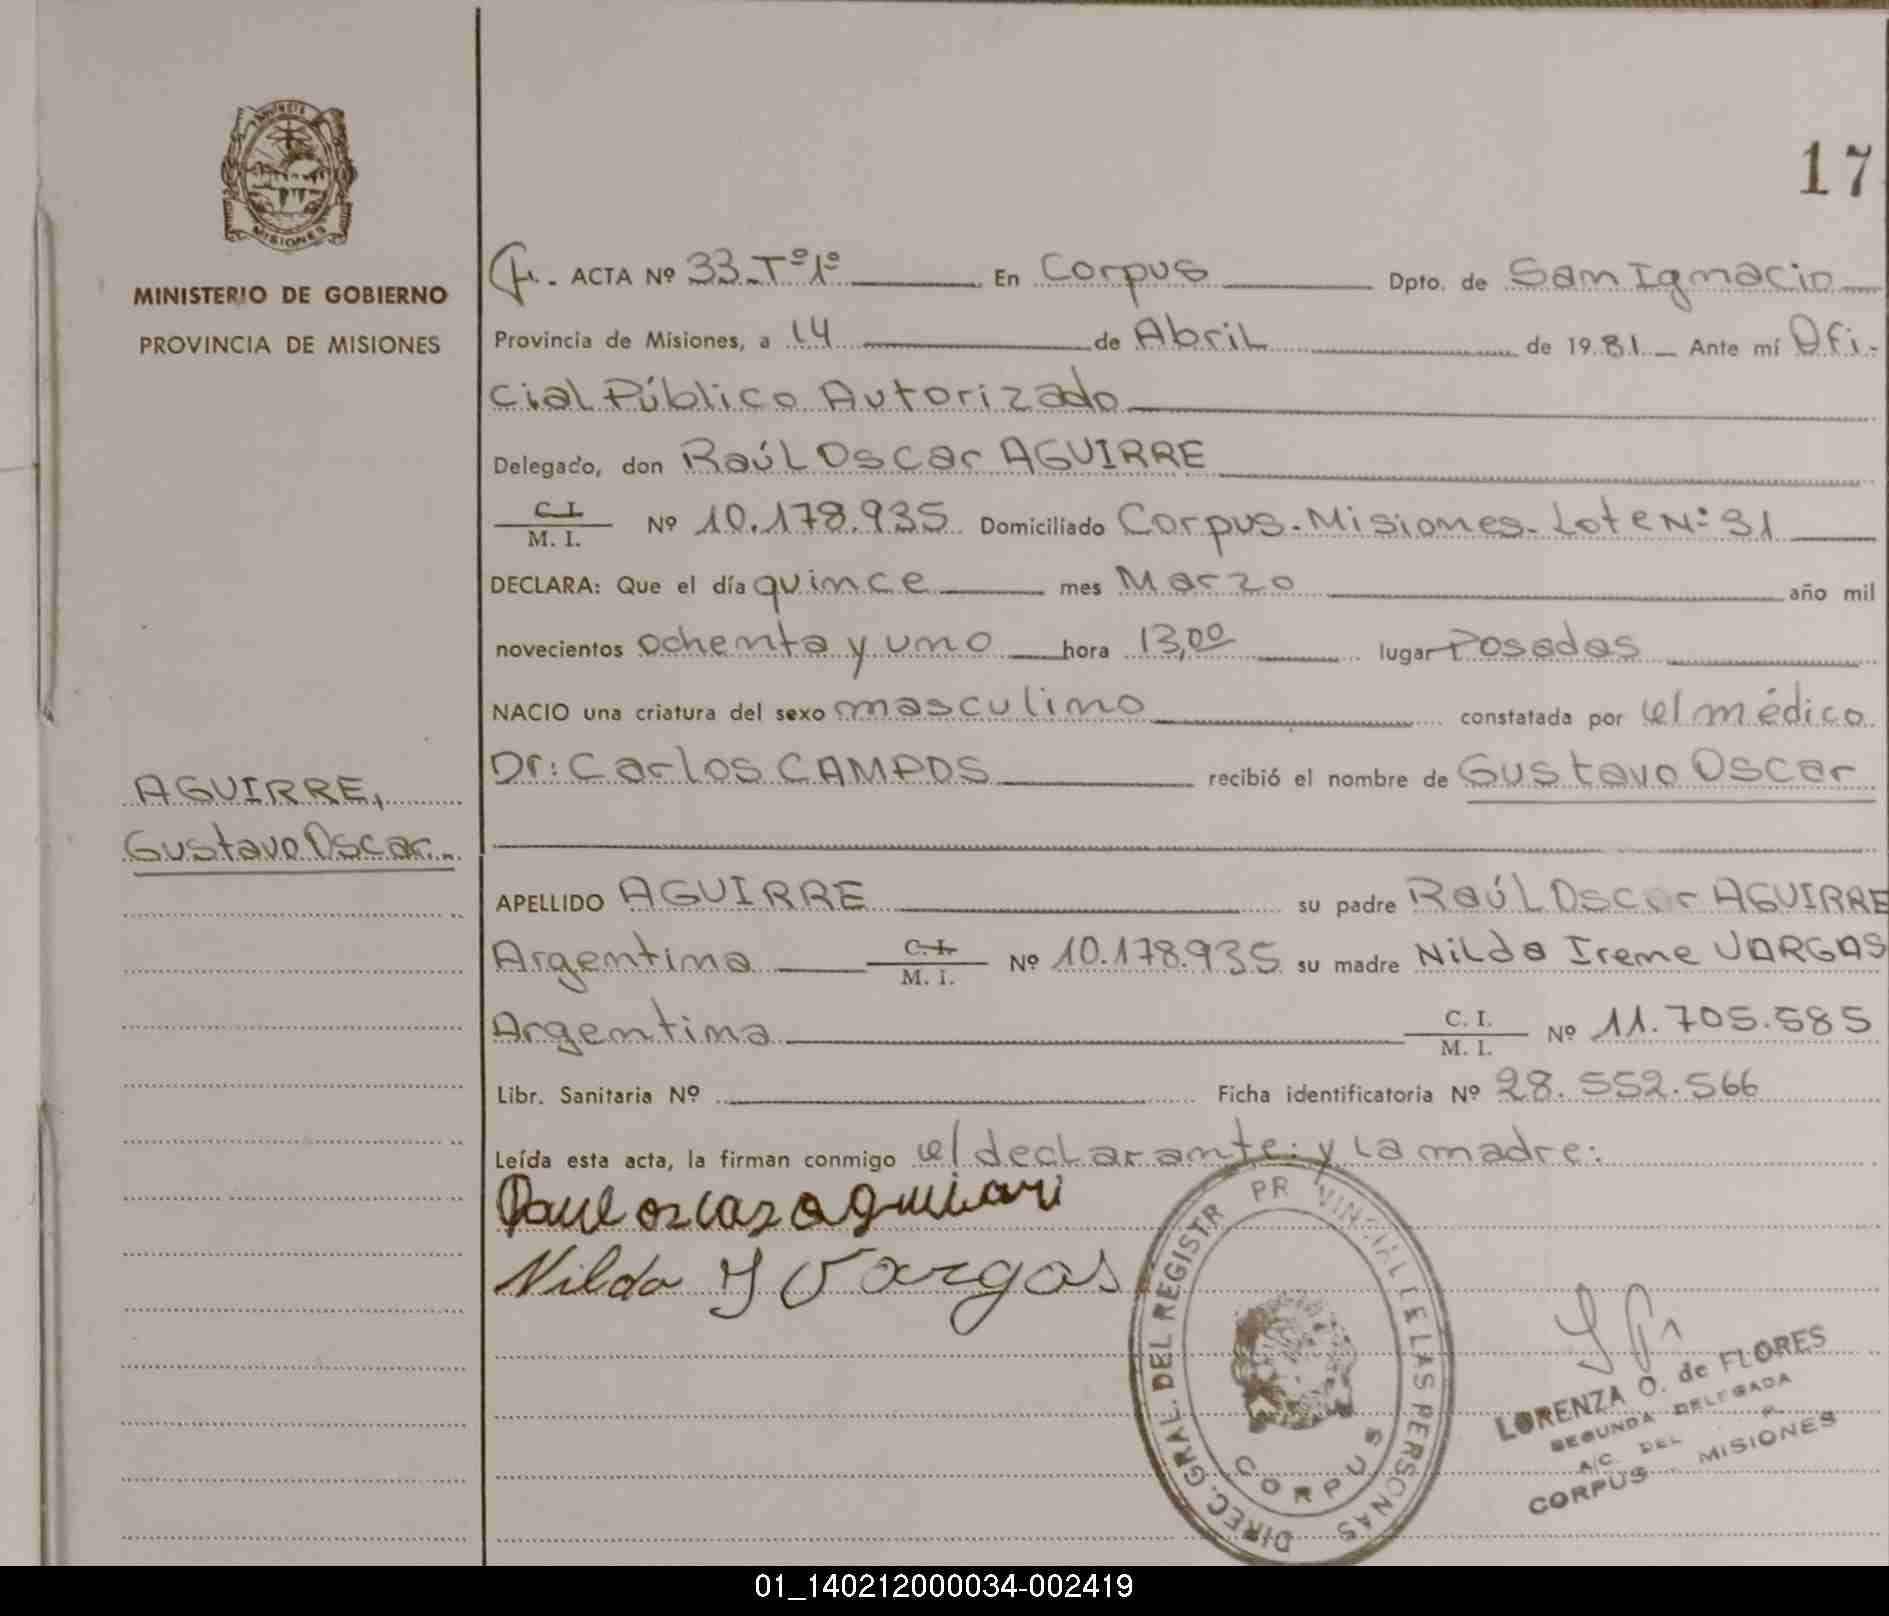 PROVINCIA
MISIONES
MINISTERIO DE GOBIERNO
PROVINCIA DE MISIONES
AGUIRRE,
Gustavo Oscar.
17
ACTA Nº 33 Tº 1º En Corpus Dpto. de San Ignacio
Provincia de Misiones, a 14 de Abril de 1981 Ante mí Ofi-
cial Público Autorizado
Delegado, don Raúl Oscar AGUIRRE
C.I. M. I. Nº 10.178.935 Domiciliado Corpus-Misiones-Lote Nº 31
DECLARA: Que el día quince mes Marzo año mil
novecientos ochenta y uno hora 13,00 lugar Posadas
NACIO una criatura del sexo masculino constatada por el médico
Dr: Carlos CAMPOS recibió el nombre de Gustavo Oscar
APELLIDO AGUIRRE su padre Raúl Oscar AGUIRRE
Argentina C.I. M. I. Nº 10.178.935 su madre Nilda Irene VARGAS
Argentina C. I. M. I. Nº 11.705.585
Libr. Sanitaria Nº Ficha identificatoria Nº 28.552.566
Leída esta acta, la firman conmigo el declarante: y la madre:
Nilda Y Vargas
DIREC. GRAL. DEL REGISTR PR VINCIAL DE LAS PERSONAS
CORPUS
LORENZA O. de FLORES
SEGUNDA DELEGADA
A/C DEL R.
CORPUS MISIONES
01_140212000034-002419